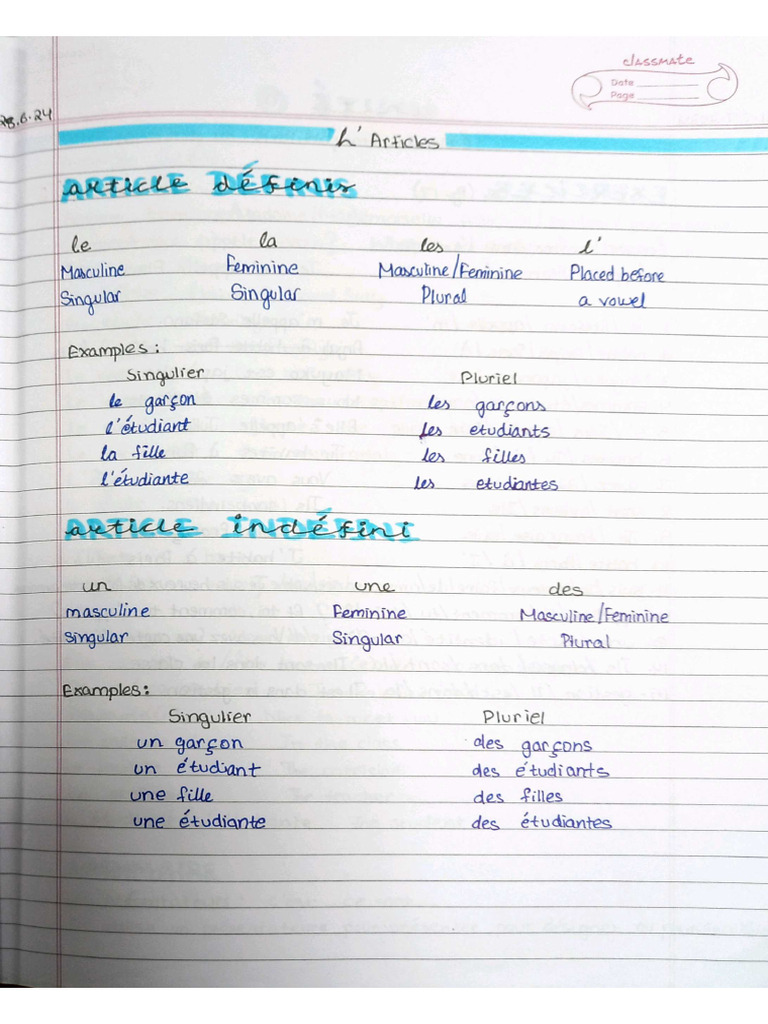 classmate
Date
Page
28.6.24
L' Articles
article définis
le la les l'
Masculine Feminine Masculine/Feminine Placed before
Singular Singular Plural a vowel
Examples:
Singulier Pluriel
le garçon les garçons
l'étudiant les etudiants
la fille les filles
l'étudiante les etudiantes
article indéfini
un une des
masculine Feminine Masculine/Feminine
Singular Singular Plural
Examples:
Singulier Pluriel
un garçon des garçons
un étudiant des étudiants
une fille des filles
une étudiante des étudiantes